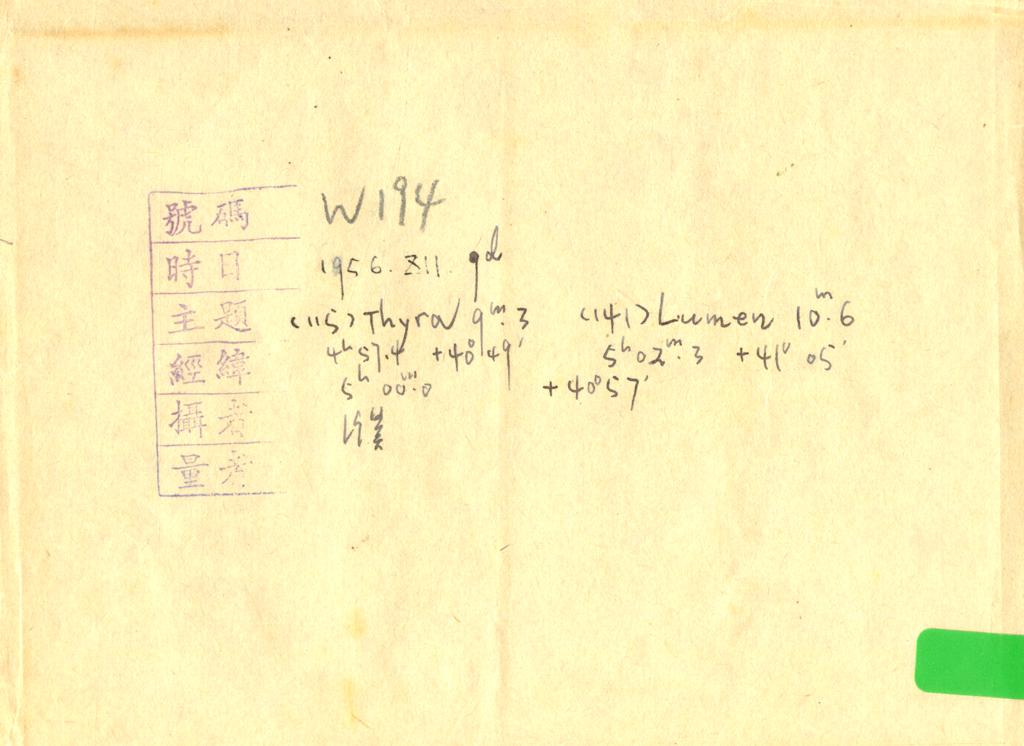 號碼 W194
時日 1956. XII. 9ᵈ
主題 (115) Thyra 9ᵐ.3 (141) Lumen 10ᵐ.6
經緯 4ʰ 57.4 +40°49′ 5ʰ 02ᵐ.3 +41° 05′
5ʰ 00ᵐ.0 +40°57′
攝者
量者